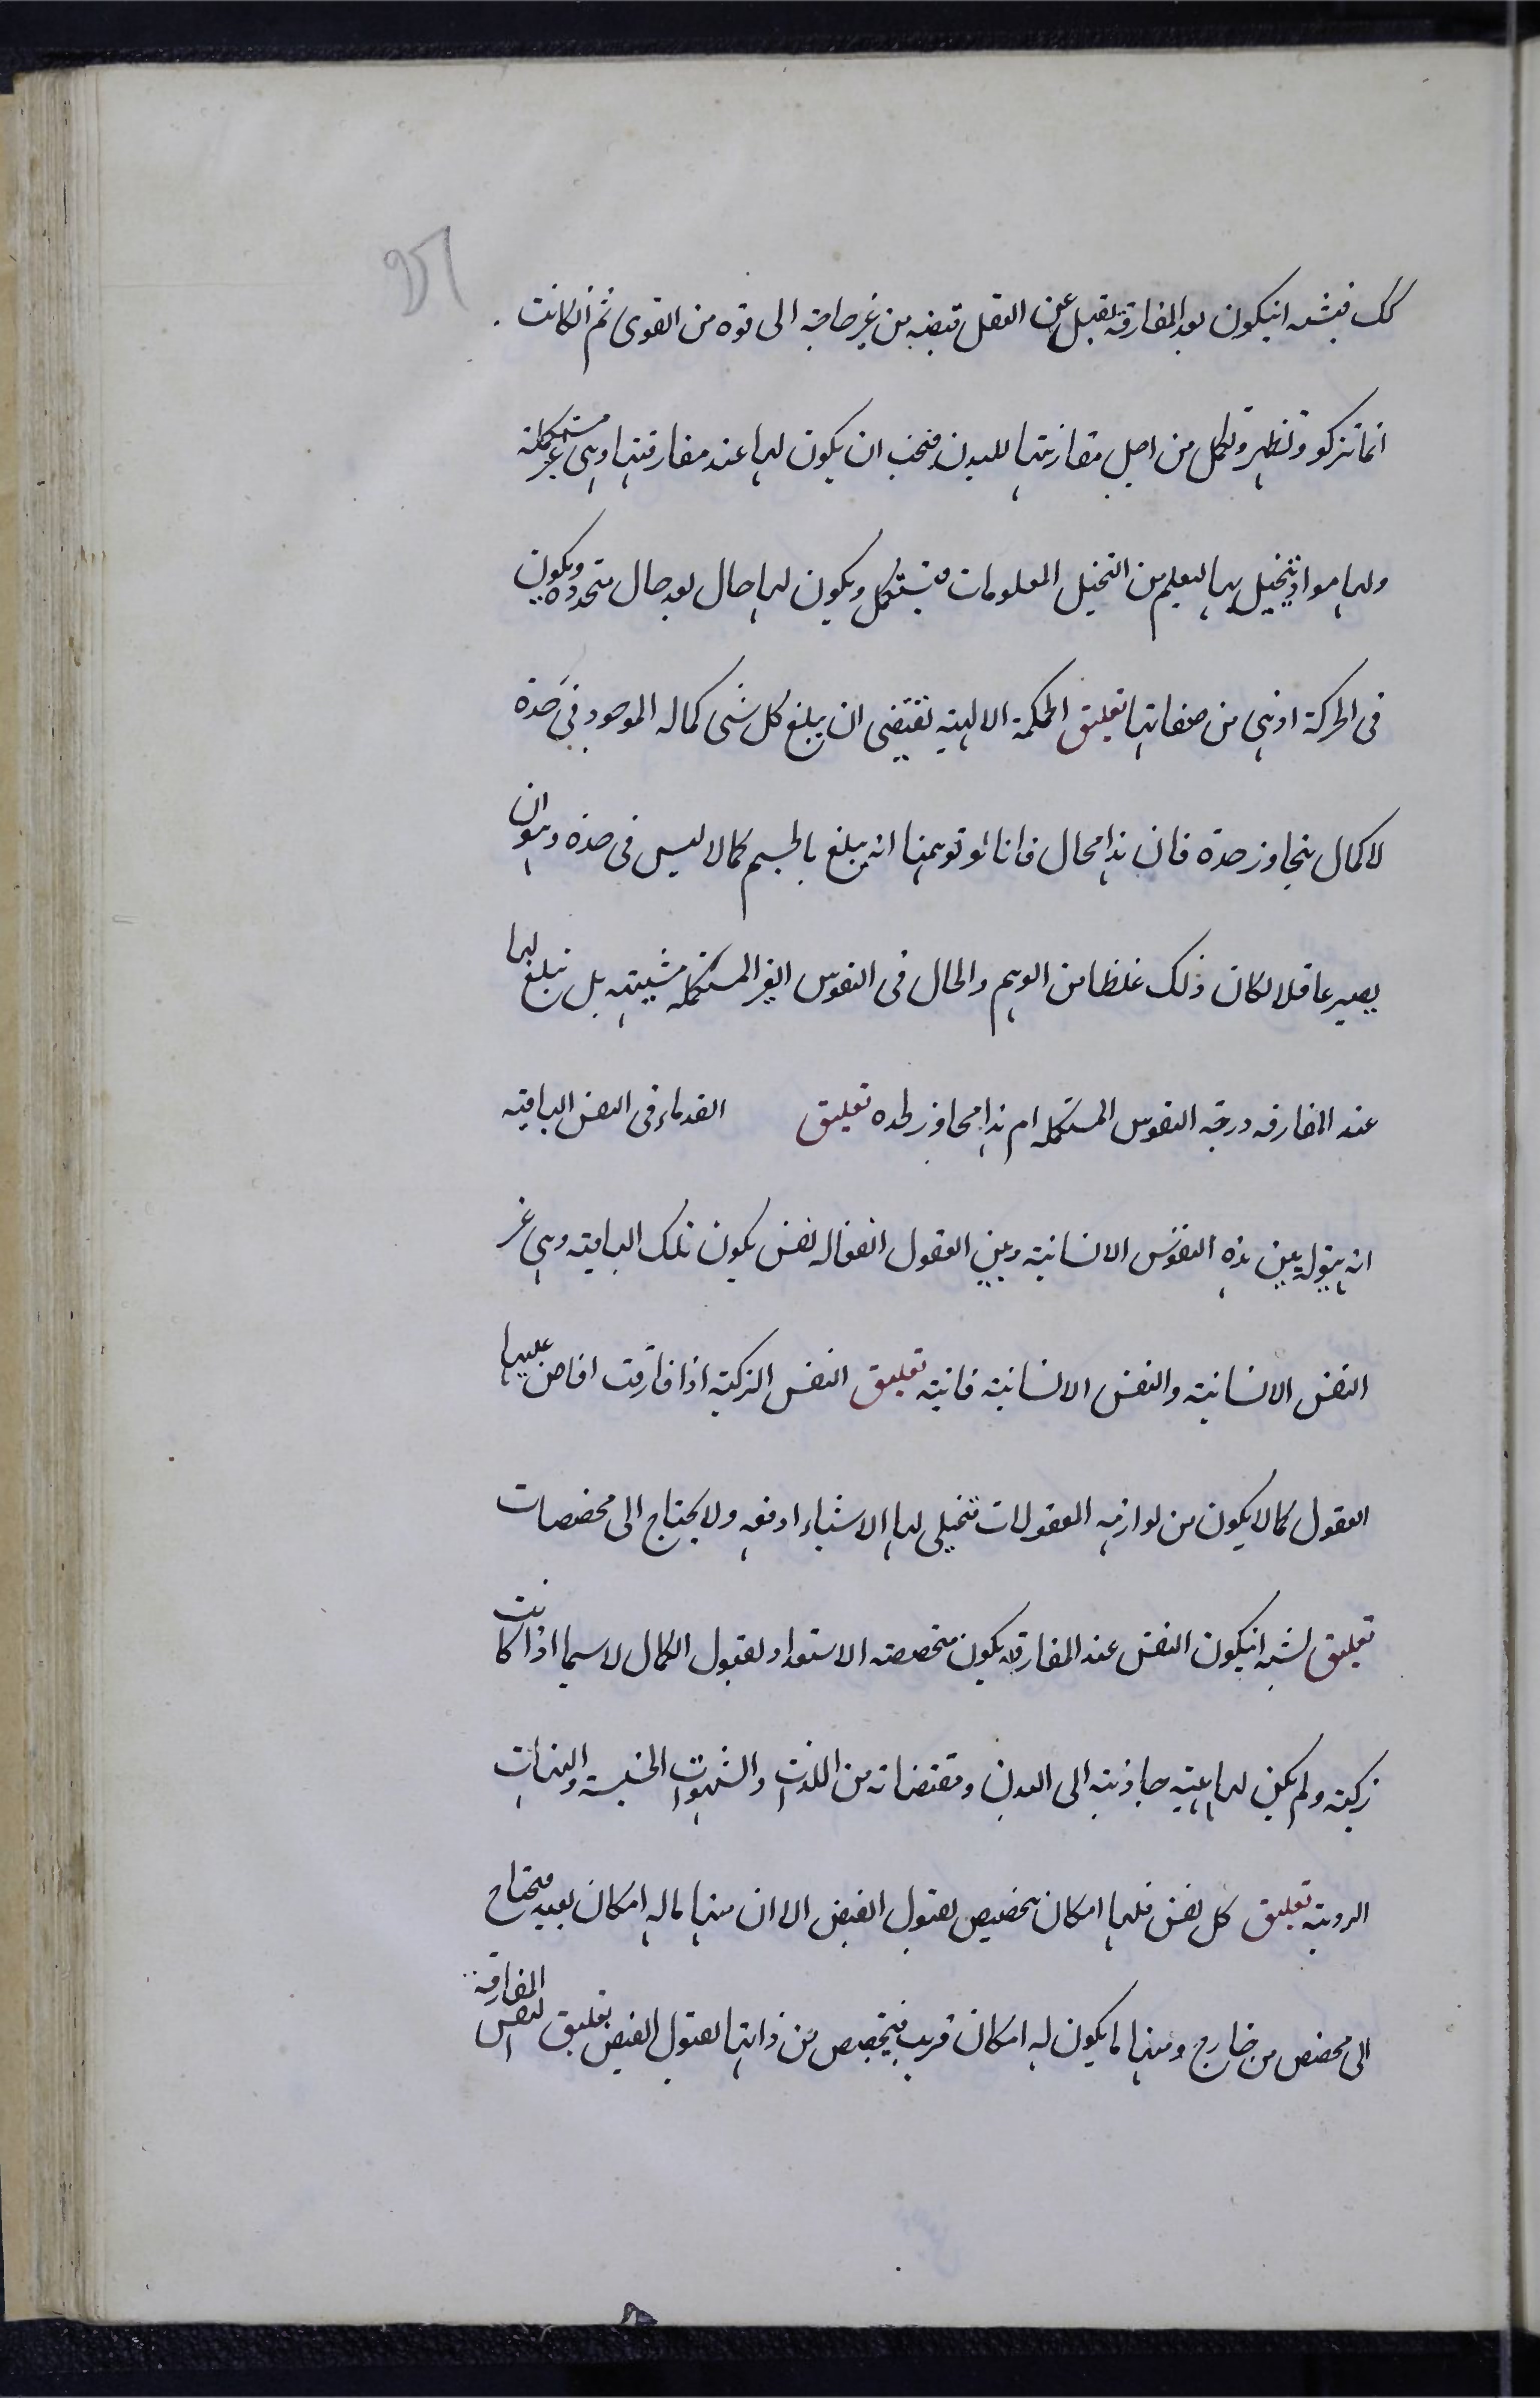 كك فيشبه انيكون بعد المفارقة يقبل عن العقل فيضه من غير حاجة الى قوة من القوى ثم انكانت
انما تزكو وتطهر وتكمل من اجل مقارنتها للبدن فيجب ان يكون لها عند مفارقتها وهى غير مستكملة
ولها مواد يتخيل بها ليعلم من التخيل المعلومات فتستكمل ويكون لها حال بعد حال متجددة ويكون
فى الحركة اذ هى من صفاتها تعليق الحكمة الالهية تقتضى ان يبلغ كل شى كماله الموجود فى حده
لا كمال يتجاوز حده فان هذا محال فانا لو توهمنا انه يبلغ بالجسم كمالا ليس فى حده وهو ان
يصير عاقلا لكان ذلك غلطا من الوهم والحال فى النفوس الغير المستكملة مشبهة بل تبلغ لها
عند المفارقه درجة النفوس المستكمله ام هذا مجاوز لحده تعليق القدماء فى النفس الباقيه
انه يتولد بين هذه النفوس الانسانية وبين العقول الفعاله نفس يكون تلك الباقية وهى غير
النفس الانسانية والنفس الانسانية فانية تعليق النفس الزكية اذا فارقت افاض عليها
العقول كمالا يكون من لوازمه المعقولات فتتجلى لها الاشياء دفعه ولا يحتاج الى مخصصات
تعليق يشبه انيكون النفس عند المفارقة يكون متخصصة الاستعداد لقبول الكمال لاسيما اذا كانت
زكية ولم يكن لها هيئه جاذبة الى البدن ومقتضاته من اللذات والشهوات الخسيسة والهيئات
الردية تعليق كل نفس فلها امكان تخصيص لقبول الفيض الا ان منها ما له امكان بعيد فيحتاج
الى مخصص من خارج ومنها ما يكون له امكان قريب فيتخصص من ذاتها لقبول الفيض تعليق النفس المفارقة